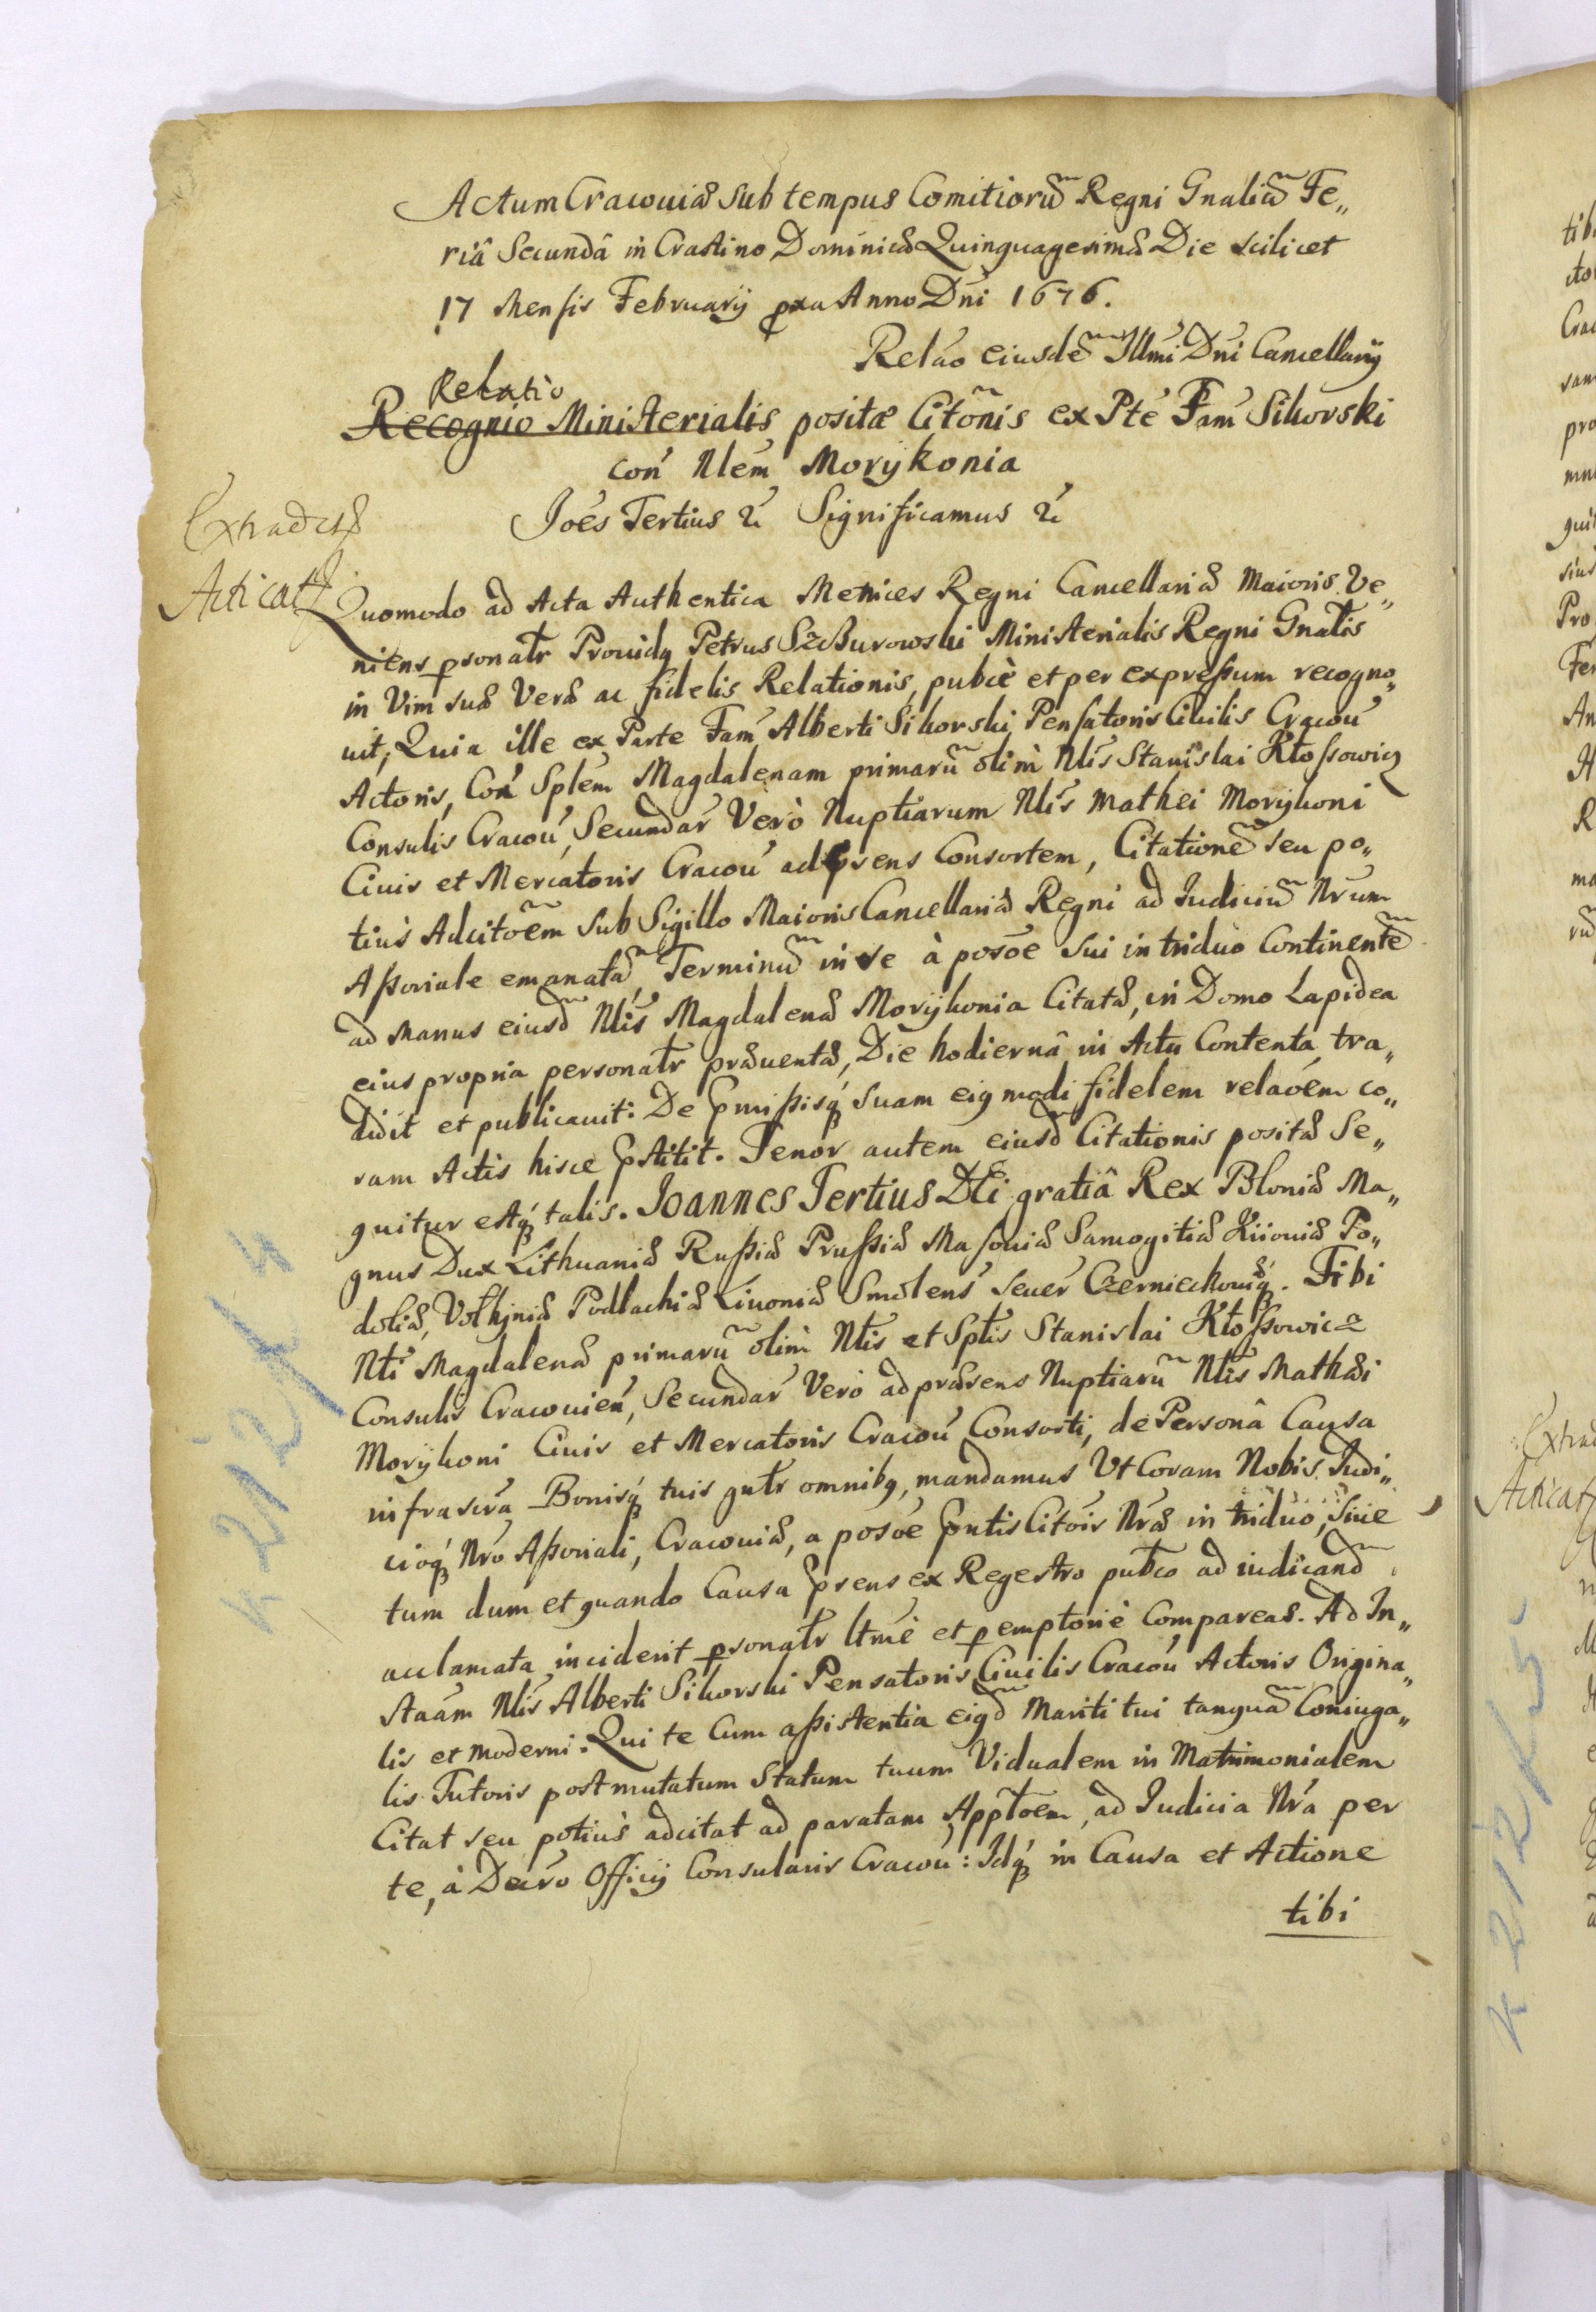 Actum Cracouiæ sub tempus Comitiorũ Regni Gnaliũ Fe„
riâ Secundâ in Crastino Dominicæ Quinquagesimæ Die scilicet
17 Mensis February pxa Anno Dńi 1676.
Reláo eiusdẽ Illmi Dńi Cancellarij
Relatio
Recognio Ministerialis positæ Citõnis ex Pte Fam Sikorski
con Nlem Morykonia
Joes Tertius &c Significamus &c
Extradita
Acticata
Quomodo ad Acta Authentica Metrices Regni Cancellariæ Maioris Ve„
niens psonalr Prouidg Petrus Szczurowski Ministerialis Regni Gnalis
in Vim suæ Veræ ac fidelis Relationis, pubcè et per expreſsum recogno„
uit; Quia ille ex Parte Fam Alberti Sikorski Pensatoris Ciuilis Cracou
Actoris, Con Splem Magdalenam primarũ olim Nlis Stanislai Kłoſsowicz
Consulis Cracou, Secundar Verò Nuptiarum Nlis Mathei Morykoni
Ciuis et Mercatoris Cracou ad prens Consortem, Citationẽ seu po„
tiùs Adcitõem sub Sigillo Maioris Cancellariæ Regni ad Iudiciũ Nrum
Aſsoriale emanatã, Terminũ in se à posõe sui in triduo Continentẽ
ad Manus eiusd Nlis Magdalenæ Morykonia Citatæ, in Domo Lapidea
eius propria personalr præuentæ, Die hodiernâ in Actu Contenta, tra„
didit et publicauit: De Pmiſsisq suam eigmodi fidelem relaõem co„
ram Actis hisce Pstitit. Tenor autem eiusd Citationis positæ Se„
quitur estq talis. Ioannes Tertius Dei gratiâ Rex Plloniæ Ma„
gnus Dux Lithuaniæ Ruſsiæ Pruſsiæ Masouiæ Samogitiæ Kiiouiæ Po„
doliæ, Volhyniæ Podlachiæ Liuoniæ Smolens Seuer Czerniechouiæq. Tibi
Nli Magdalenæ primarũ olim Nlis et Splis Stanislai Kłoſsowicz
Consulis Cracouien, Secundar Verò ad præsens Nuptiarũ Nlis Mathæi
Morykoni Ciuis et Mercatoris Cracou Consorti, de Personâ Causa
infrascra Bonisq tuis gnlr omnibg, mandamus Vt Coram Nobis Iudi„
cioq Nro Aſsoriali, Cracouiæ, a posõe Pntis Citõis Nræ in triduo, siue
tum dum et quando Causa Prens ex Regestro publco ad iudicand
acclamata inciderit psonalr ltmè et pemptoriè Compareas. Ad In„
staám Nlis Alberti Sikorski Pensatoris Ciuilis Cracou Actoris Origina„
lis et Moderni. Qui te Cum aſsistentia eigd Mariti tui tanquã Coniuga„
lis Tutoris post mutatum Statum tuum Vidualem in Matrimonialem
Citat seu potiùs adcitat ad paratam Apptõem, ad Iudicia Nra per
te, à Decro Officij Consularis Cracou: Idq in Causa et Actione
tibi